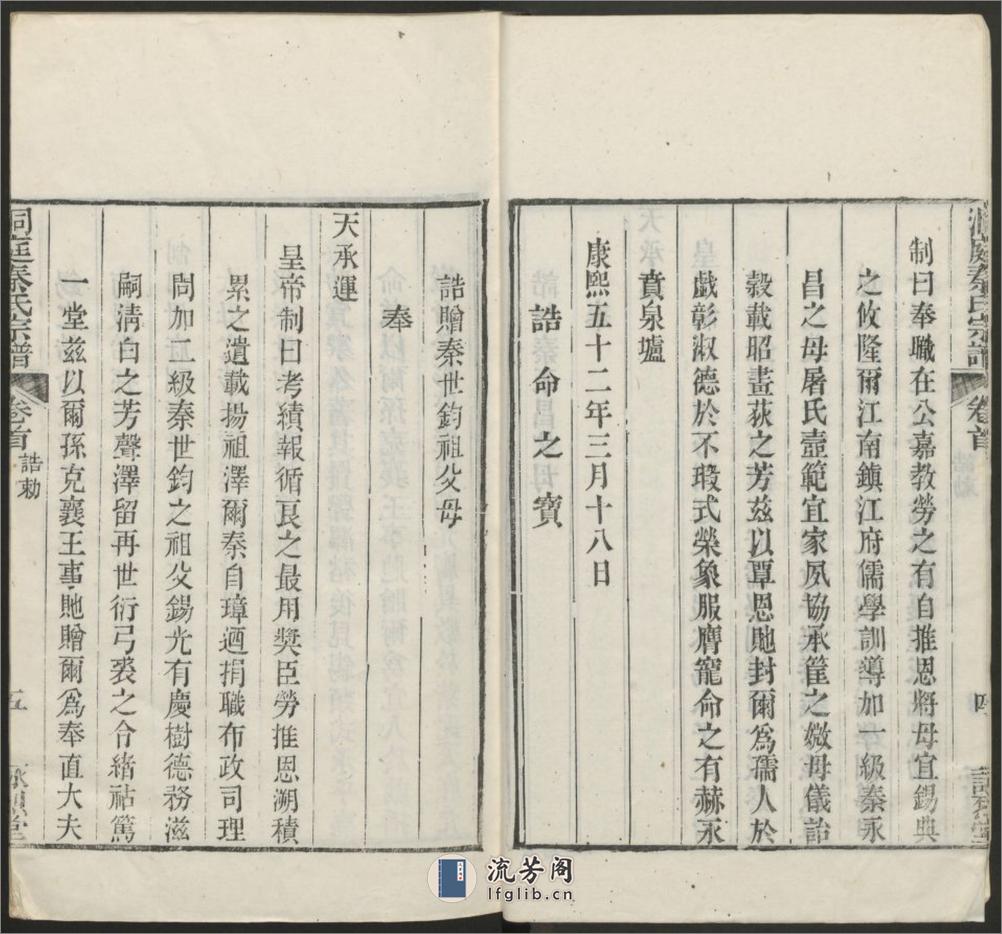 制曰奉職在公嘉教勞之有自推恩將母宜錫典
之攸隆爾江南鎮江府儒學訓導加一級秦永
昌之母屠氏壼範宜家夙協承筐之媺母儀詒
穀載昭畫荻之芳兹以覃恩貤封爾為孺人於
戲彰淑德於不瑕式榮象服膺寵命之有赫永
賁泉壚
康熙五十二年三月十八日
誥命之寶
洞庭秦氏宗譜
卷首
誥勅
四
誥贈秦世鈞祖父母
奉
天承運
皇帝制曰考績報循良之最用獎臣勞推恩溯積
累之遺載揚祖澤爾秦自璋迺捐職布政司理
問加二級秦世鈞之祖父錫光有慶樹德務滋
嗣清白之芳聲澤留再世衍弓裘之令緒祜篤
一堂兹以爾孫克襄王事貤贈爾爲奉直大夫
洞庭秦氏宗譜
卷首
誥勅
五
流芳阁
lfglib.cn